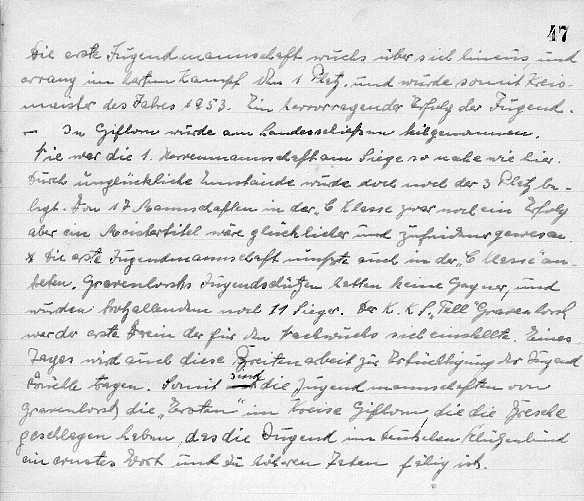 47
Die erste Jugendmannschaft wuchs über sich hinaus und
errang im harten Kampf den 1 Platz. und wurde somit Kreis-
meister des Jahres 1953. Ein hervorragender Erfolg der Jugend.
– In Gifhorn wurde am Landesschießen teilgenommen.
Nie war die 1. Herrenmannschaft am Siege so nahe wie hier.
Durch unglückliche Umstände wurde doch noch der 3 Platz be-
legt. Von 17 Mannschaften in der „C Klasse zwar noch ein Erfolg
aber ein Meistertitel wäre glücklicher und zufriedener gewesen.
* Die erste Jugendmannschaft mußte auch in der „C Klasse" an-
treten. Gravenhorsts Jugendschützen hatten keine Gegner, und
wurden trotzalledem noch 11 Sieger. Der K.K.S. „Tell" Gravenhorst
war der erste Verein der für den Nachwuchs sich einstellte. Eines
Tages wird auch diese Breitenarbeit zur Ertüchtigung der Jugend
Früchte tragen. Somit sind die Jugendmannschaften von
Gravenhorst die „Ersten" im Kreise Gifhorn, die die Bresche
geschlagen haben, das die Jugend im deutschen Schützenbund
ein ernstes Wort und zu höheren Taten fähig ist.